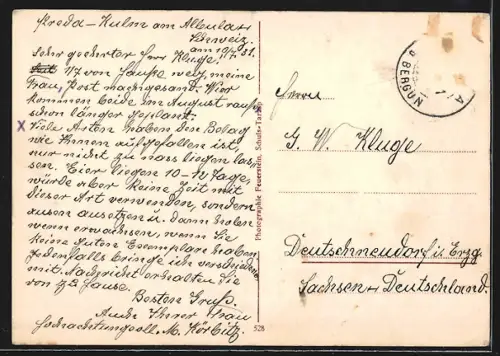 Preda - Kulm am Albula
Schweiz.
am 10/7.51.
Sehr geehrter Herr Kluge!
1/7 von Hause weg, meine
Frau, Post nachgesand. Wier
kommen beide im August rauf
schon länger geplant.
X Viele Arten haben den Belag
wie Ihnen aufgefallen ist,
nur nicht zu nass liegen las,
sen. Eier liegen 10-12 Tage,
würde aber keine Zeit mit
dieser Art verwenden, sondern
aussetzen u. dann holen
wenn erwachsen, wenn Sie
keine guten Exemplare haben,
jedenfalls bringe ich verschiedene
mit. Nachricht erhalten Sie
von zu Hause.
Besten Gruß.
Auch Ihrer Frau
Hochachtungsvoll. M. Körbitz.
Photographie Feuerstein, Schuls-Tarasp
528
BERGÜN
Herrn
G. W. Kluge
Deutschneudorf i. Erzg.
Sachsen Deutschland.